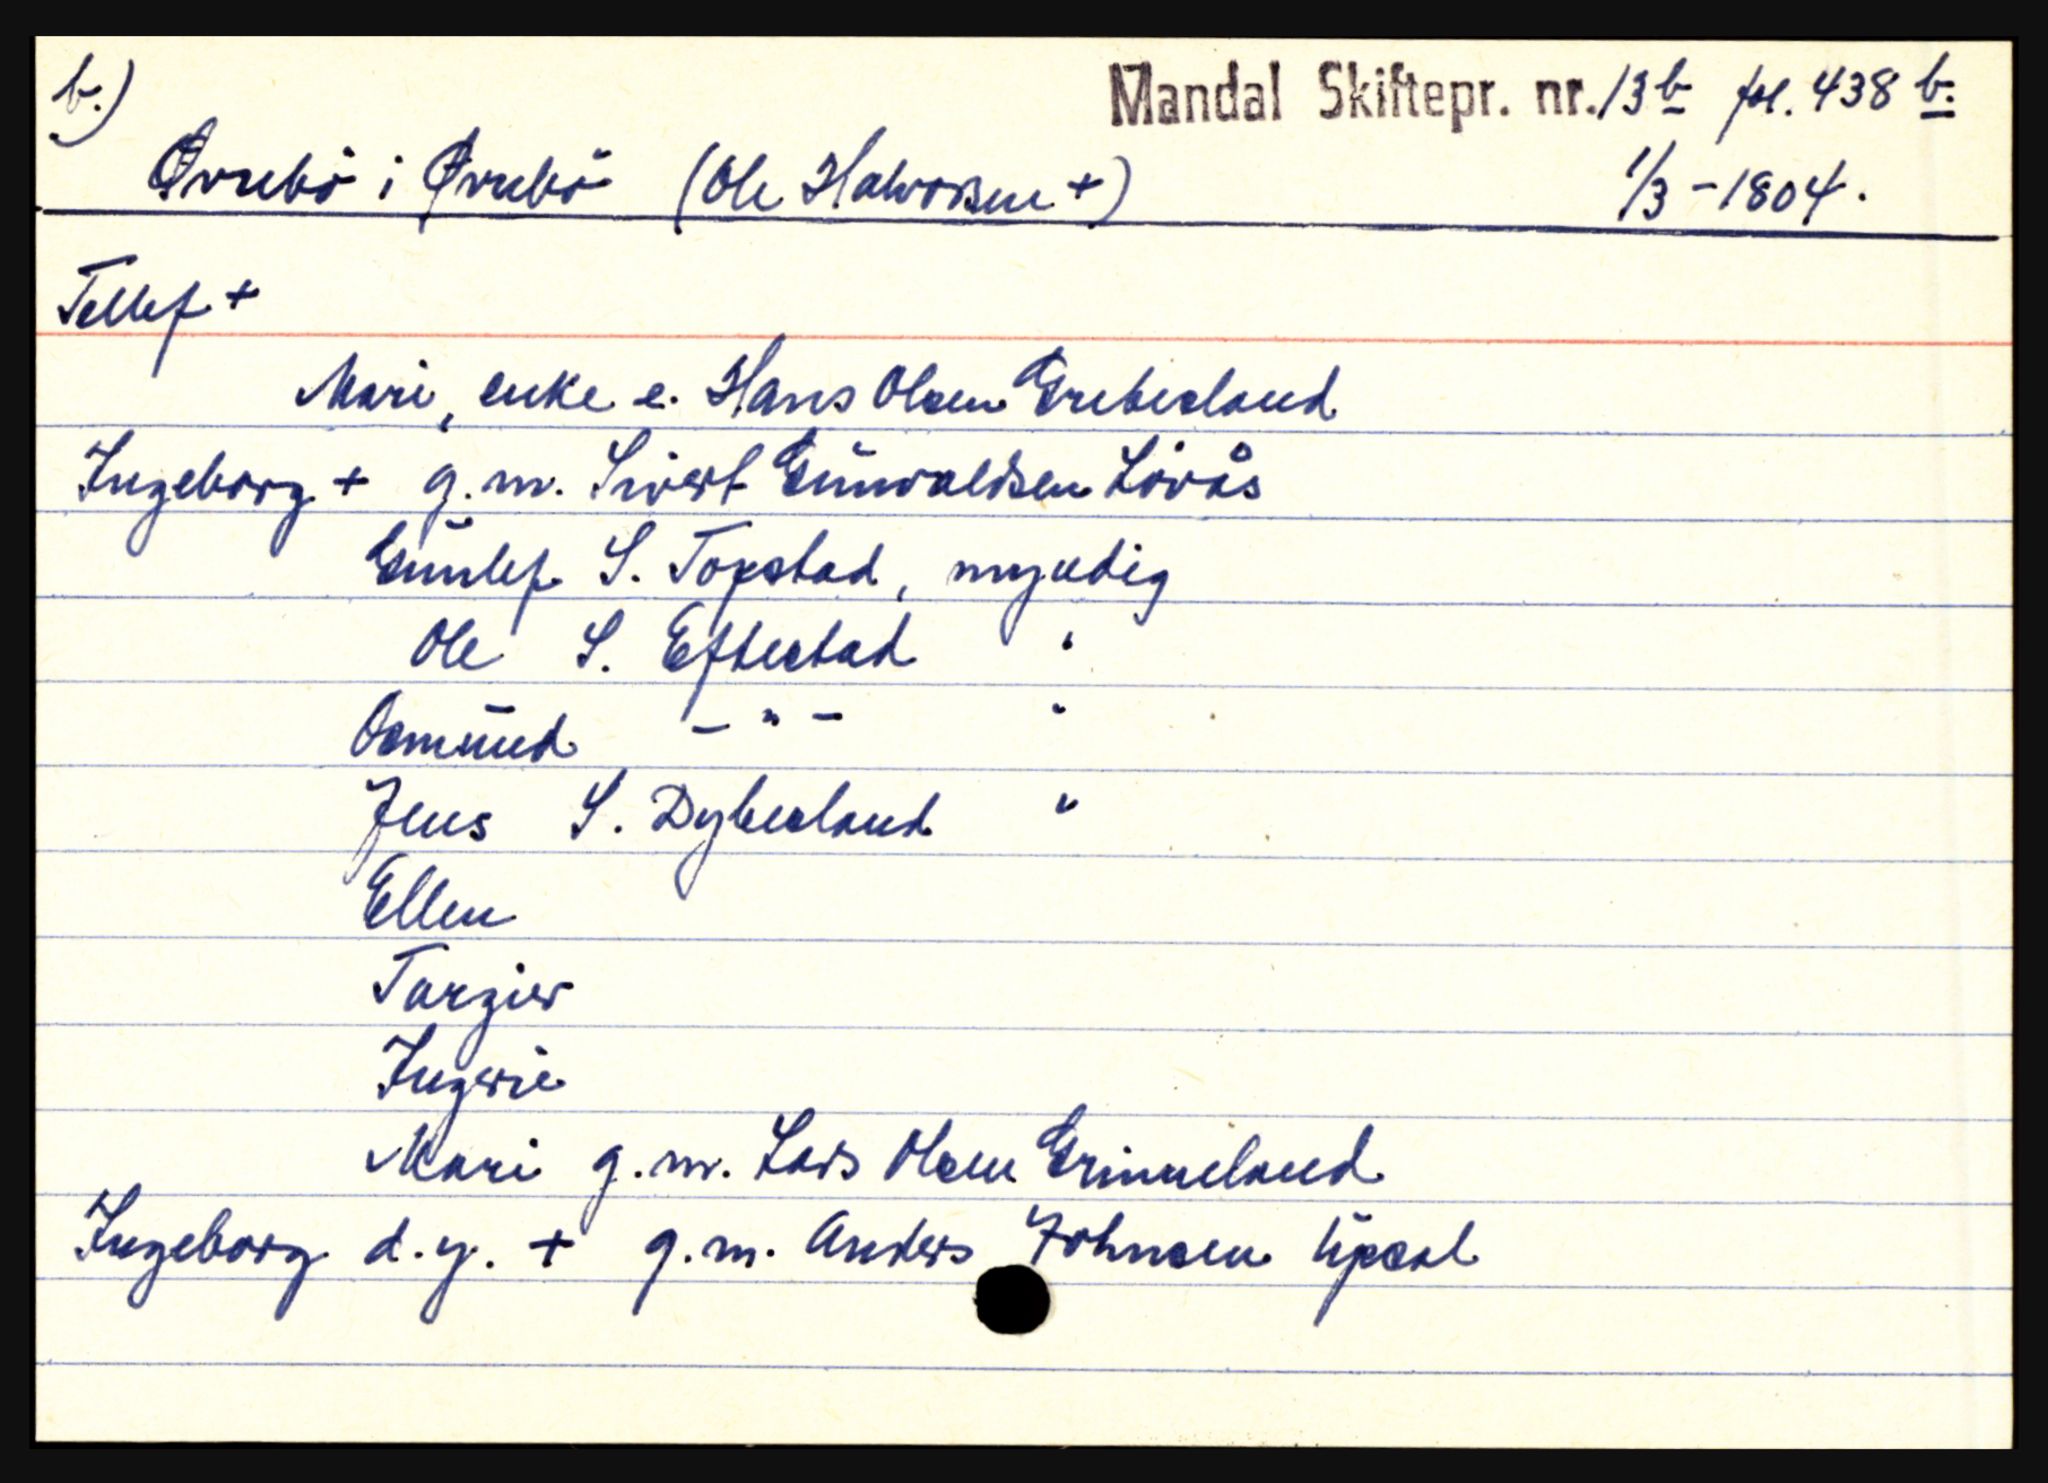 b.)
Mandal Skiftepr. nr. 13b fol. 438 b.
Øvrebö i Øvrebö (Ole Halvorsen +) 1/3 - 1804.
Tellef +
Mari, enke e. Hans Olsen Grebesland
Ingeborg + g.m. Sivert Gunvaldsen Lövås
Gunlef S. Topstad, myndig
Ole S. Eftestad "
Osmund - " - "
Jens S. Dybesland "
Ellen
Targier
Ingerie
Mari g.m. Lars Olsen Grimeland
Ingeborg d.y. + g.m. Anders Johnsen Upsal